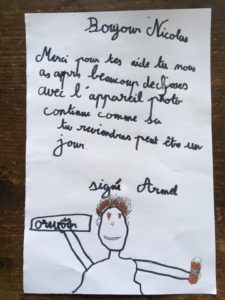 Boujour Nicolas
Merci pour tes aide tu nous
as appris beaucoup de choses
avec l'appareil photo
continue comme sa
tu reviendras peut être un
jour
signé Armel
orevoir